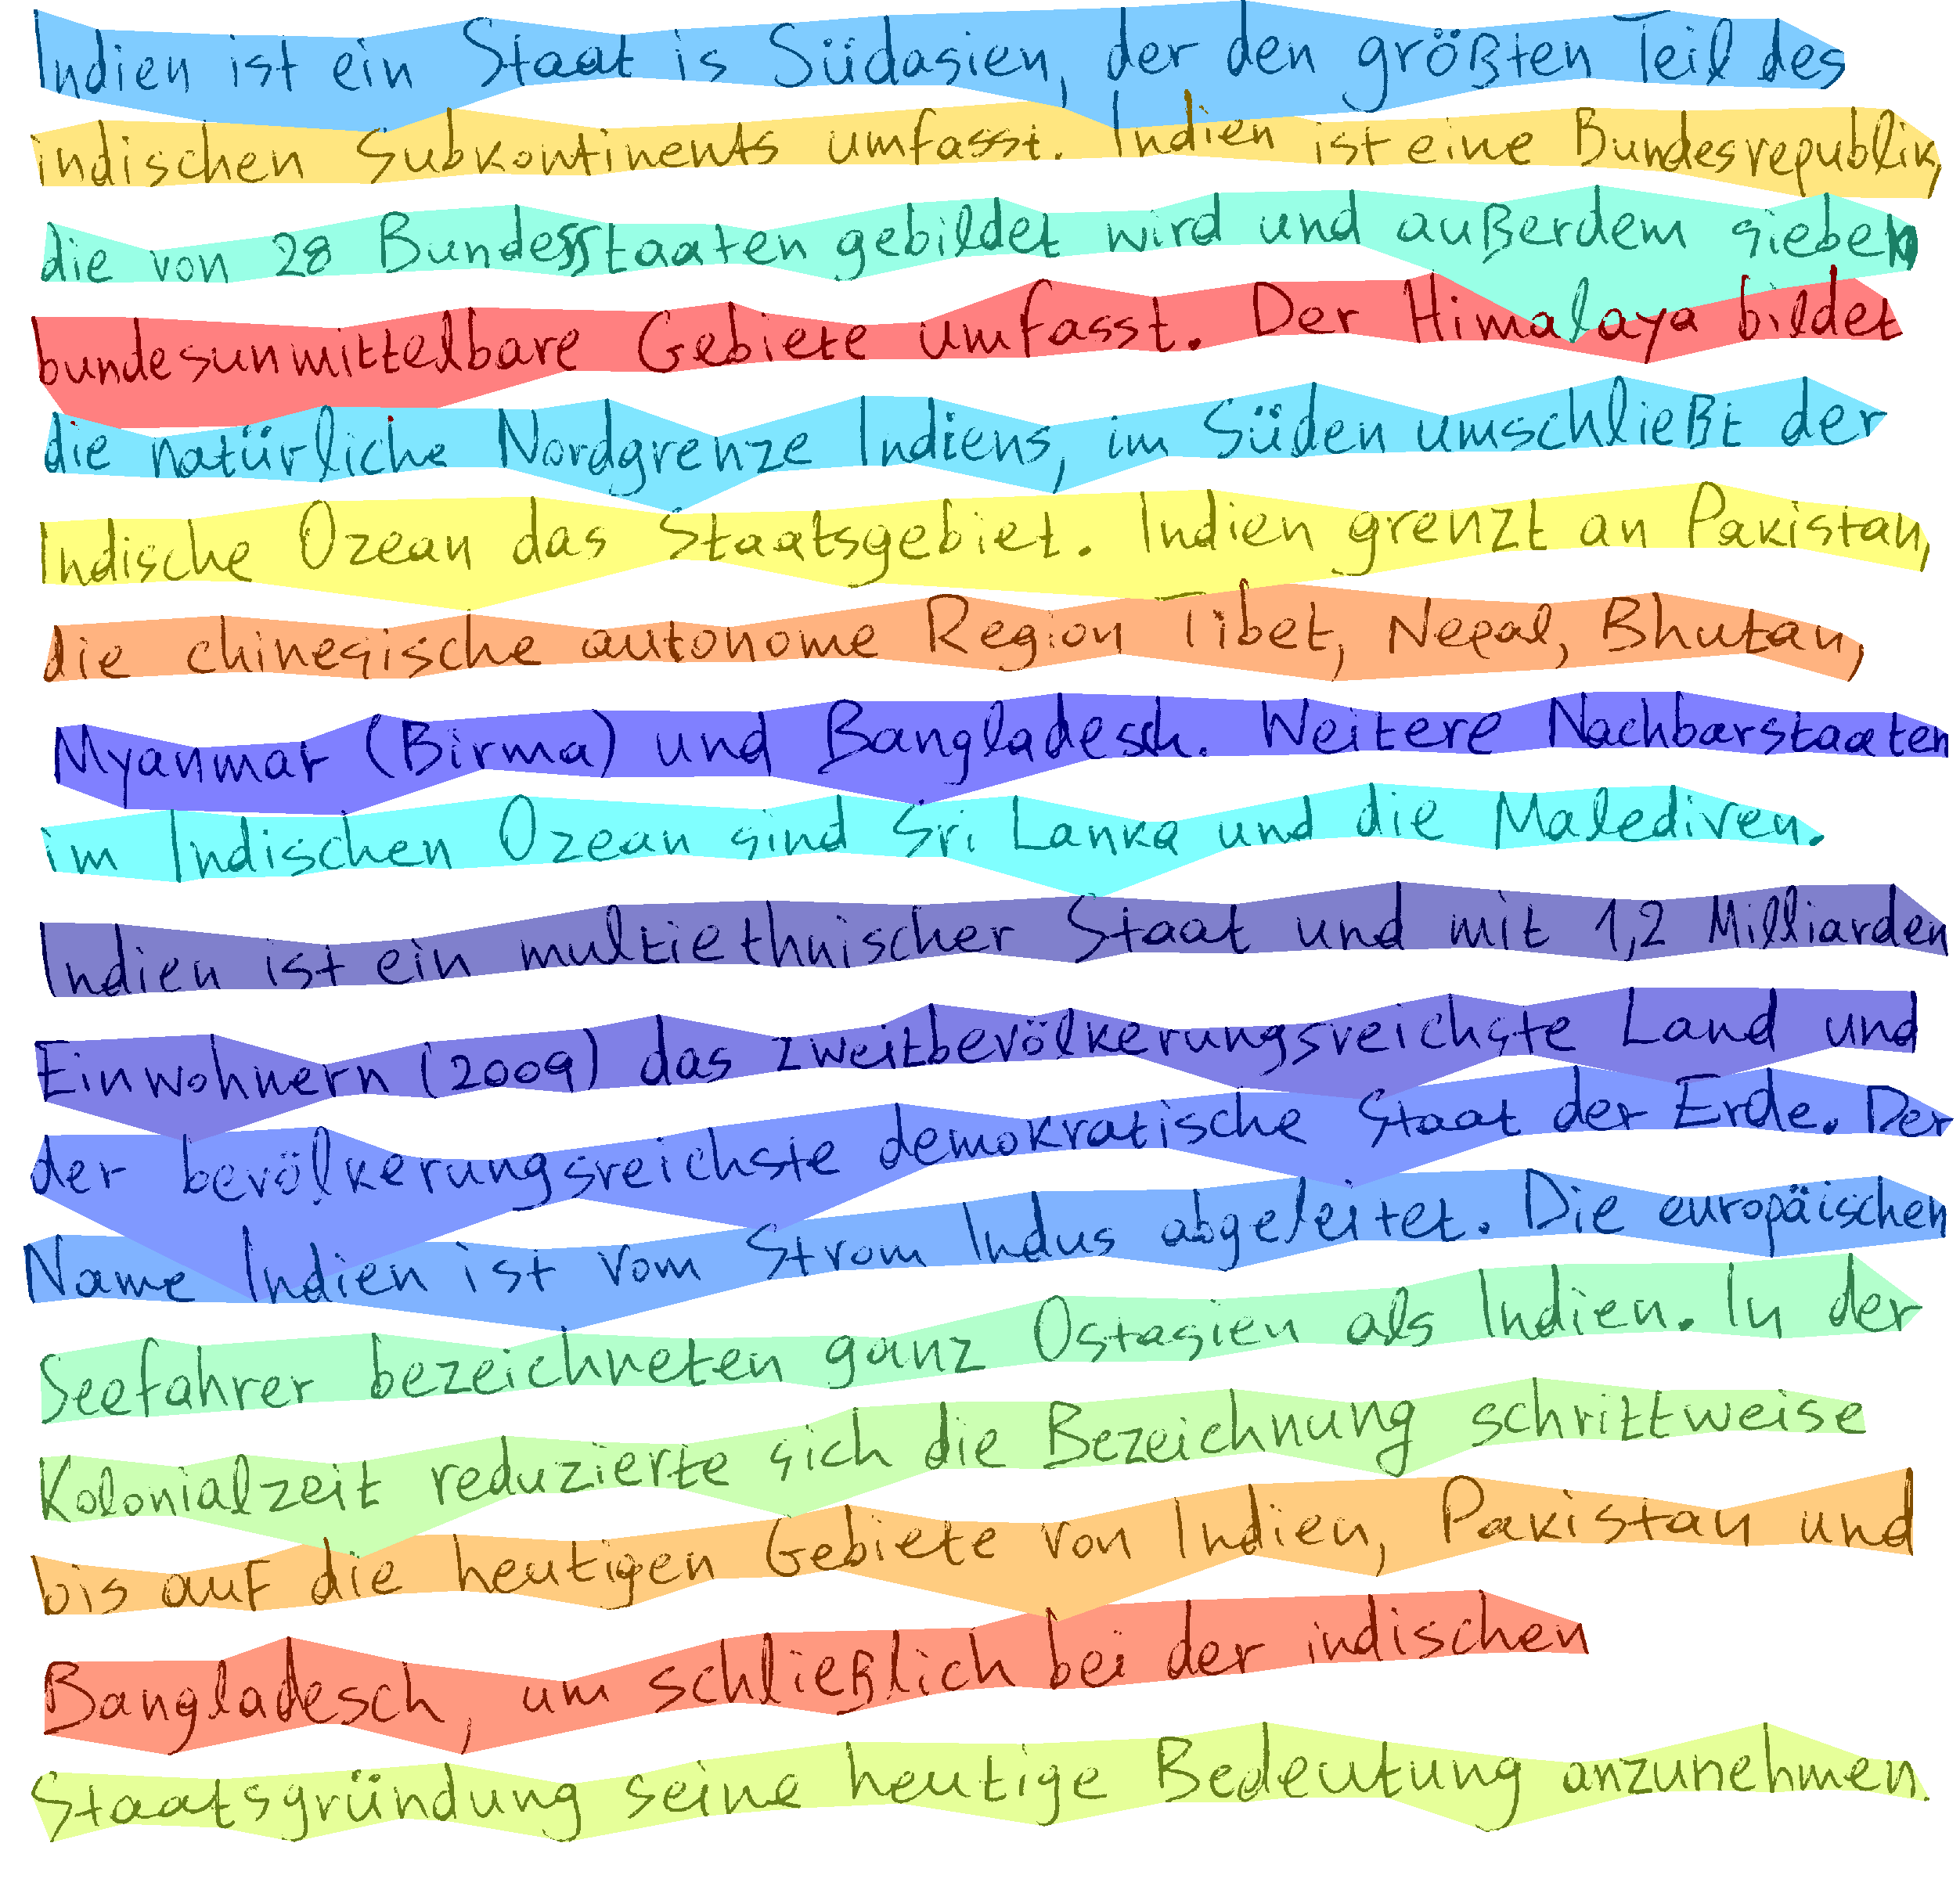 Indien ist ein Staat is Südasien, der den größten Teil des
indischen Subkontinents umfasst. Indien ist eine Bundesrepublik,
die von 28 Bundesstaaten gebildet wird und außerdem sieben
bundesunmittelbare Gebiete umfasst. Der Himalaya bildet
die natürliche Nordgrenze Indiens, im Süden umschließt der
Indische Ozean das Staatsgebiet. Indien grenzt an Pakistan,
die chinesische autonome Region Tibet, Nepal, Bhutan,
Myanmar (Birma) und Bangladesch. Weitere Nachbarstaaten
im Indischen Ozean sind Sri Lanka und die Malediven.
Indien ist ein multiethnischer Staat und mit 1,2 Milliarden
Einwohnern (2009) das zweitbevölkerungsreichste Land und
der bevölkerungsreichste demokratische Staat der Erde. Der
Name Indien ist vom Strom Indus abgeleitet. Die europäischen
Seefahrer bezeichneten ganz Ostasien als Indien. In der
Kolonialzeit reduzierte sich die Bezeichnung schrittweise
bis auf die heutigen Gebiete von Indien, Pakistan und
Bangladesch, um schließlich bei der indischen
Staatsgründung seine heutige Bedeutung anzunehmen.